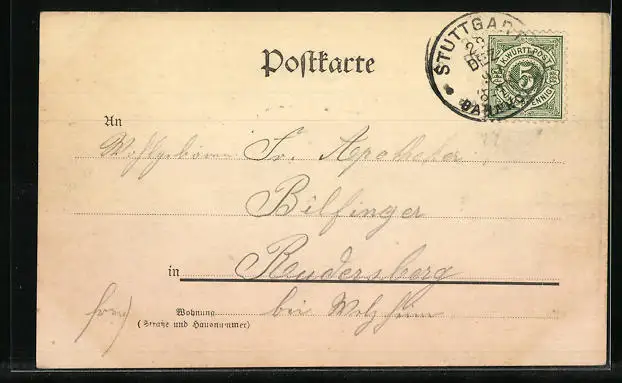 Postkarte
STUTTGART
28
DEZ
BAHNHOF
K. WÜRTT. POST
5
FÜNF PFENNIG
An
Wohlgeboren Fr. Apotheker
Bilfinger
in Rudersberg
Wohnung bei Welzheim
(Straße und Hausnummer)